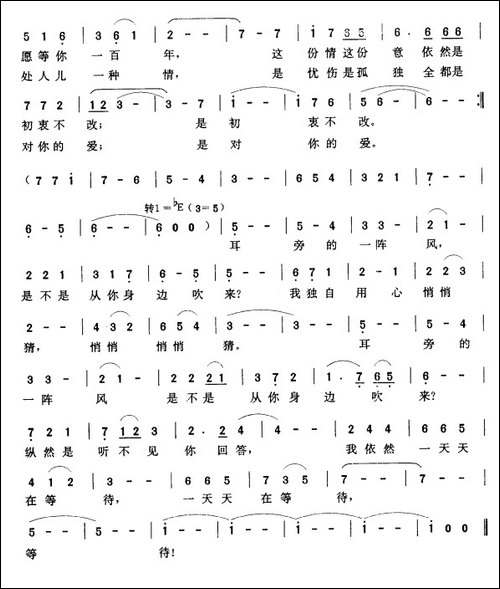 5 1 6 | 3 6 1 | 2 - - | 7 - 7 | 1 7 6 5 | 6. 6 6 6 |
愿等你 一百 年, 这 份情这份 意依然是
处人儿 一种 情, 是 忧伤是孤 独全都是
7 7 2 | 1 2 3 - | 3 - 7 | 1 - - | 1 7 6 | 5 6 - | 6 - - :||
初衷不 改; 是 初 衷不 改。
对你的 爱; 是 对 你的 爱。
( 7 7 1 | 7 - 6 | 5 - 4 | 3 - - | 6 5 4 | 3 2 1 | 7 - - |
转1=♭E(3=5)
6 - 5 | 6 - - | 6 0 0 ) | 5 - - | 5 - 4 | 3 3 - | 2 1 - |
耳 旁的 一阵 风,
2 2 1 | 3 1 7 | 6 - 5 | 5 - - | 6 7 1 | 2 - 1 | 2 2 3 |
是不是 从你身 边吹 来? 我独自 用心 悄悄
2 - - | 4 3 2 | 6 5 4 | 3 - - | 3 - - | 5 - - | 5 - 4 |
猜, 悄悄 悄悄 猜。 耳 旁的
3 3 - | 2 1 - | 2 2 2 1 | 3 7 2 | 1. 7 6 5 | 5 - - |
一阵 风 是不是 从你身 边 吹 来?
7 2 1 | 7 1 2 3 | 2. 2 4 | 4 - - | 2 4 4 | 6 6 5 |
纵然是 听不见 你 回答, 我依然 一天天
4 1 2 | 3 - - | 6 6 5 | 7 3 5 | 7 - - | 7 - - |
在等 待, 一天天 在等 待,
5 - - | 5 - - | 1 - - | 1 - - | 1 - - | 1 - - | 1 0 0 ||
等 待!